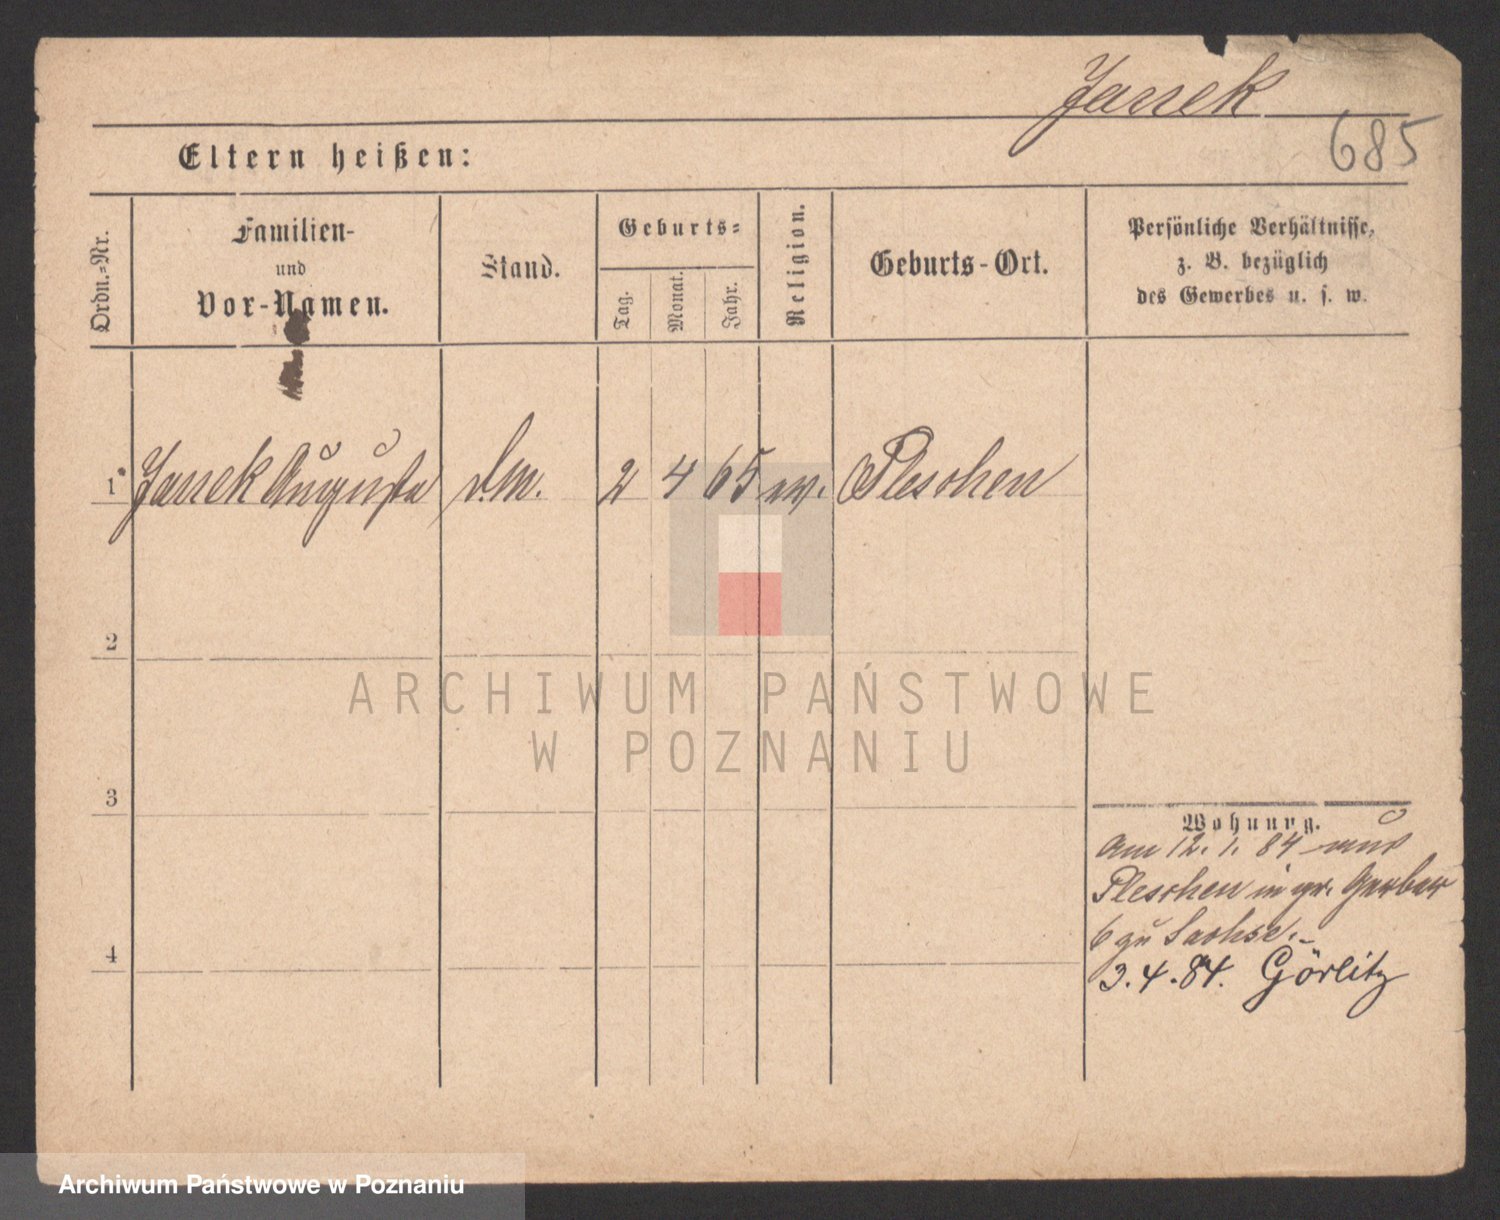 Janek
685
Eltern heißen:
Ordn.=Nr.
Familien-
und
Vor-Namen.
Stand.
Geburts=
Tag.
Monat.
Jahr.
Religion.
Geburts-Ort.
Persönliche Verhältnisse,
z. B. bezüglich
des Gewerbes u. s. w.
1 Janek Augusta d.M. 2 4 65 ev. Pleschen
2
3
4
Wohnung.
Am 12. 1. 84 aus
Pleschen in gr. Gerber
6 zu Sachse.
3.4.84. Görlitz
ARCHIWUM PAŃSTWOWE
W POZNANIU
Archiwum Państwowe w Poznaniu